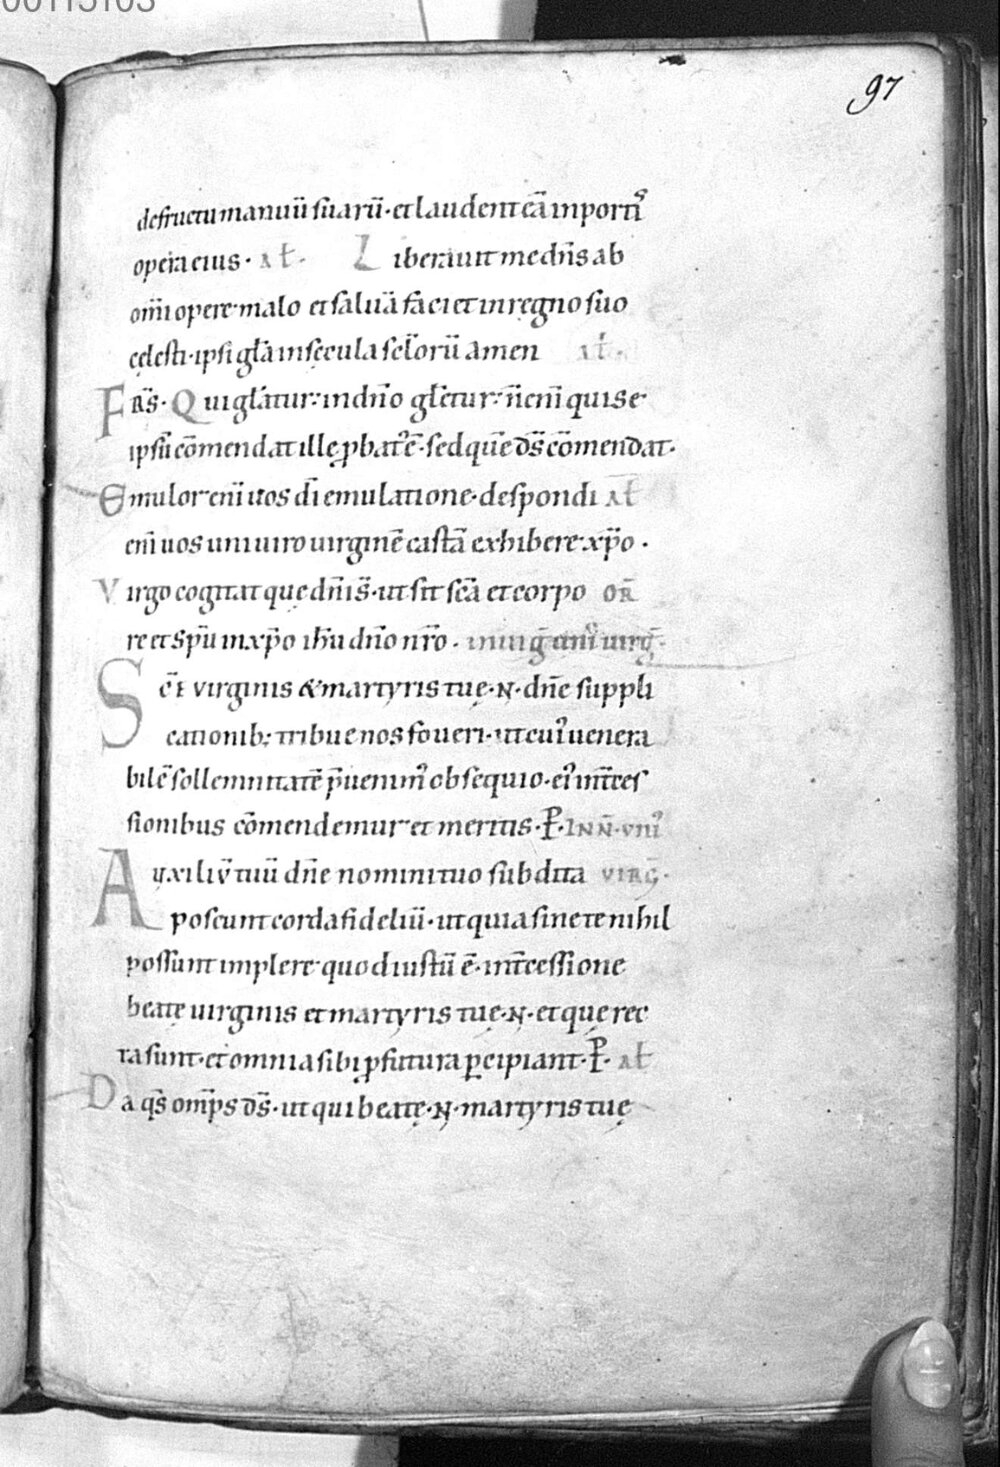 00113103
97
de fructu manuū suarū · et laudent eā in portꝭ
opera eius · aƚ · Liberauit me dn̄s ab
om̄i opere malo et saluā faciet in regno suo
cęlesti · ipsi gƚa in sęcula scƚorū amen aƚ ·
FRS̄ · Qui gƚatur · in dn̄o gƚetur · n̄ enī qui se
ipsū cōmendat ille ꝓbatꝰ ē · sed quē ds̄ cōmendat ·
Emulor enī uos dī emulatione · despondi aƚ
enī uos uni uiro uirginē castā exhibere xp̄o ·
Virgo cogitat quę dn̄i s̄ · ut sit scā et corpo OR̄
re et sp̄u in xp̄o ih̄u dn̄o nr̄o · in uiḡ uniꝰ uirḡ ·
Scē t virginis & martyris tuę · N · dn̄e suppli
cationib; tribue nos foueri · ut cuiꝰ uenera
bilē sollemnitatē p̄uenimꝰ obsequio · eiꝰ int̄ces
sionibus cōmendemur et meritis · P · INN̄ · vniꝰ
Auxiliv̄ tuū dn̄e nomini tuo subdita VIRḠ ·
poscunt corda fideliū · ut quia sine te nihil
possunt implere quod iustū ē · int̄cessione
beatę uirginis et martyris tuę · N · et quę rec
ta sunt · et omnia sibi ꝓfutura ꝑcipiant · P · aƚ
Da qs̄ om̄ps ds̄ · ut qui beatę · N · martyris tuę